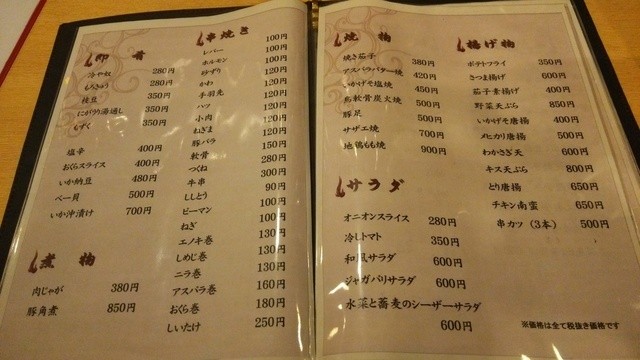 即肴
冷や奴 280円
もろきゅう 280円
枝豆 350円
にがうり湯通し 350円
もずく 350円
塩辛 400円
おくらスライス 400円
いか納豆 480円
ベー貝 500円
いか沖漬け 700円
煮物
肉じゃが 380円
豚角煮 850円
串焼き
レバー 100円
ホルモン 100円
砂ずり 120円
かわ
手羽先
ハツ
小肉
ねぎま 120円
豚バラ 150円
軟骨 120円
つくね
牛串 300円
ししとう 90円
ピーマン 100円
ねぎ 100円
エノキ巻 130円
しめじ巻 130円
ニラ巻 130円
アスパラ巻 160円
おくら巻 180円
しいたけ 250円
焼物
焼き茄子 380円
アスパラバター焼 420円
いかげそ塩焼 450円
鳥軟骨炭火焼 450円
豚足 500円
サザエ焼 700円
地鶏もも焼 900円
サラダ
オニオンスライス 280円
冷しトマト 350円
和風サラダ 600円
ジャガバリサラダ 600円
水菜と蕎麦のシーザーサラダ
600円
揚げ物
ポテトフライ 350円
さつま揚げ 600円
茄子素揚げ 400円
野菜天ぷら 850円
いかげそ唐揚 400円
メヒカリ唐揚
わかさぎ天 600円
キス天ぷら 800円
とり唐揚 650円
チキン南蛮 650円
串カツ(3本) 500円
※価格は全て税抜き価格です